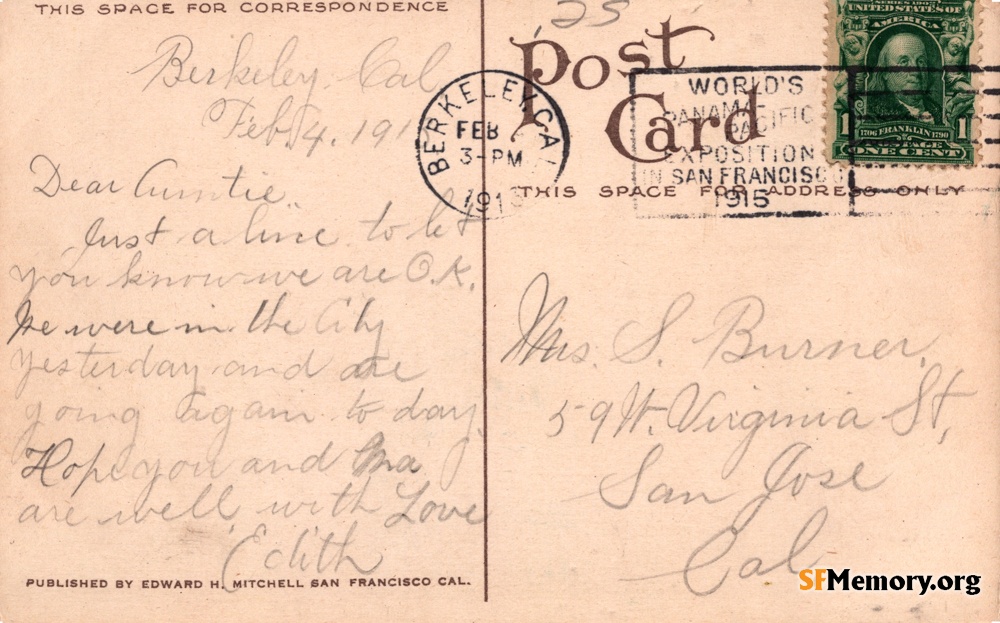 THIS SPACE FOR CORRESPONDENCE
Berkeley Cal
Feb. 4, 191
Dear Auntie..
Just a line to let
you know we are O.K.
We were in the City
yesterday and are
going again to day.
Hope you and Ma
are well with Love
Edith
PUBLISHED BY EDWARD H. MITCHELL SAN FRANCISCO CAL.
25
Post
Card
THIS SPACE FOR ADDRESS ONLY
BERKELEY, CAL
FEB
3-PM
191
WORLD'S
PANAMA-
PACIFIC
EXPOSITION
IN SAN FRANCISCO
1915
UNITED STATES OF
AMERICA
1706 FRANKLIN 1790
1 1
ONE CENT
Mrs. S. Burner,
59 W. Virginia St,
San Jose
Cal
SFMemory.org